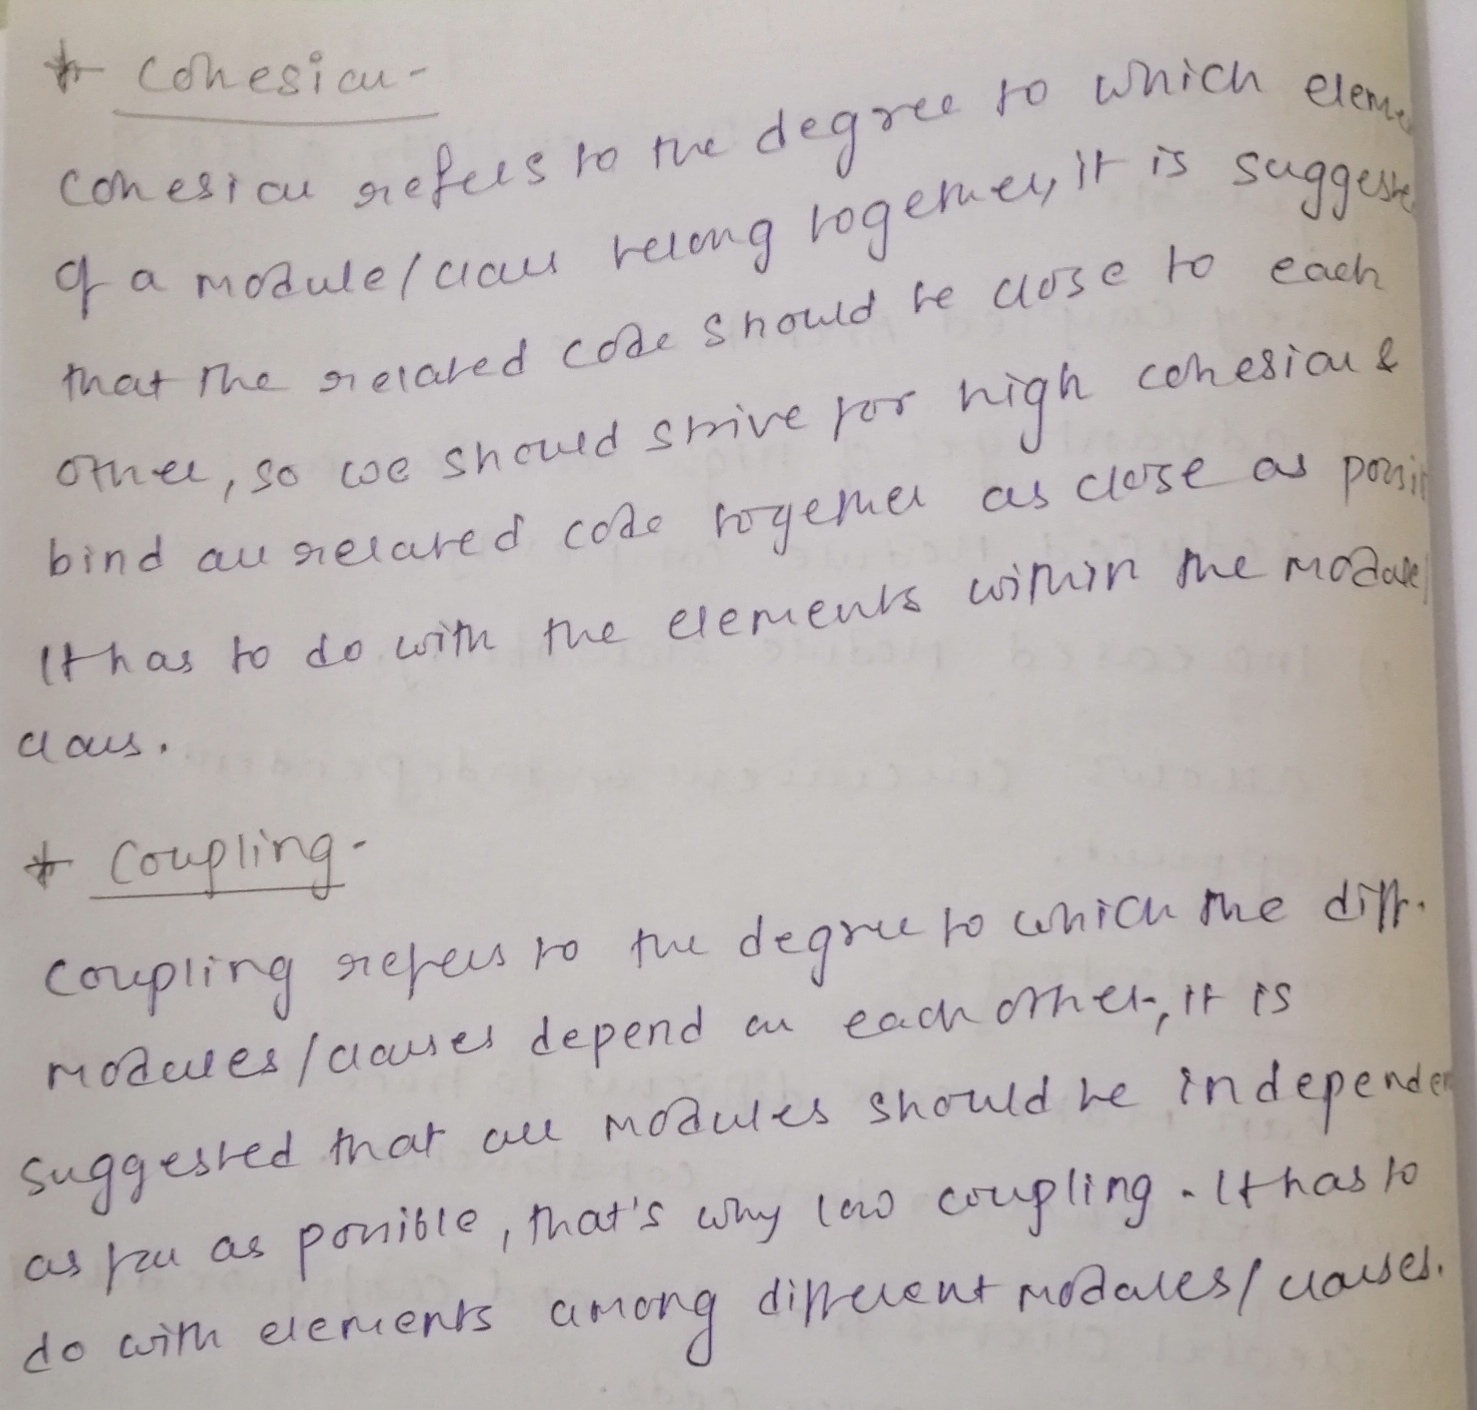 * Cohesion -
Cohesion refers to the degree to which eleme
of a module/class belong together, it is suggeste
that the related code should be close to each
other, so we should strive for high cohesion &
bind all related code together as close as possi
It has to do with the elements within the module/
class.
* Coupling -
Coupling refers to the degree to which the diff.
modules/classes depend on each other, it is
suggested that all modules should be independen
as far as possible, that's why low coupling. It has to
do with elements among different modules/classes.